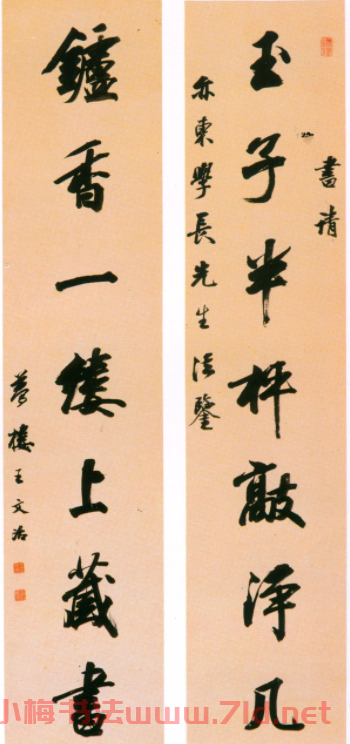 書請
玉子半枰敲淨几
亦東學長先生法鑒
鑪香一縷上藏書
夢樓王文治
小梅书法www.7ld.net